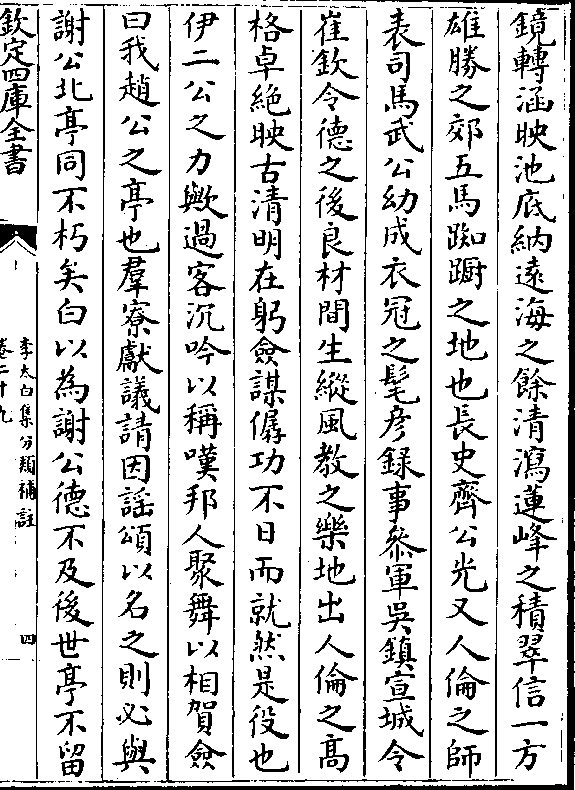 鏡轉涵映池底納遠海之餘清瀉蓮峰之積翠信一方
雄勝之郊五馬踟躕之地也長史齊公光乂人倫之師
表司馬武公幼成衣冠之髦彥録事叅軍吳鎮宣城令
崔欽令德之後良材間生縱風教之樂地出人倫之髙
格卓絶映古清明在躬僉謀僝功不日而就然是役也
伊二公之力歟過客沉吟以稱嘆邦人聚舞以相賀僉
曰我趙公之亭也羣寮獻議請因謡頌以名之則必與
謝公北亭同不朽矣白以為謝公德不及後世亭不留
欽定四庫全書
李太白集分類補註
卷二十九
四